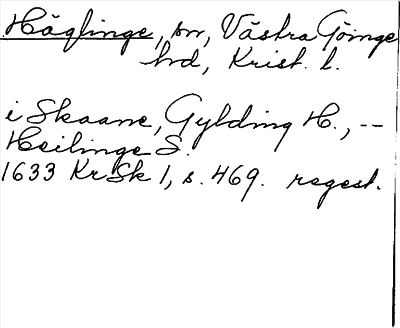 Häglinge, sn, Västra Göinge
hd, Krist. l.
i Skaane, Gylding H., --
Heilinge S.
1633 KrSk 1, s. 469. regest.